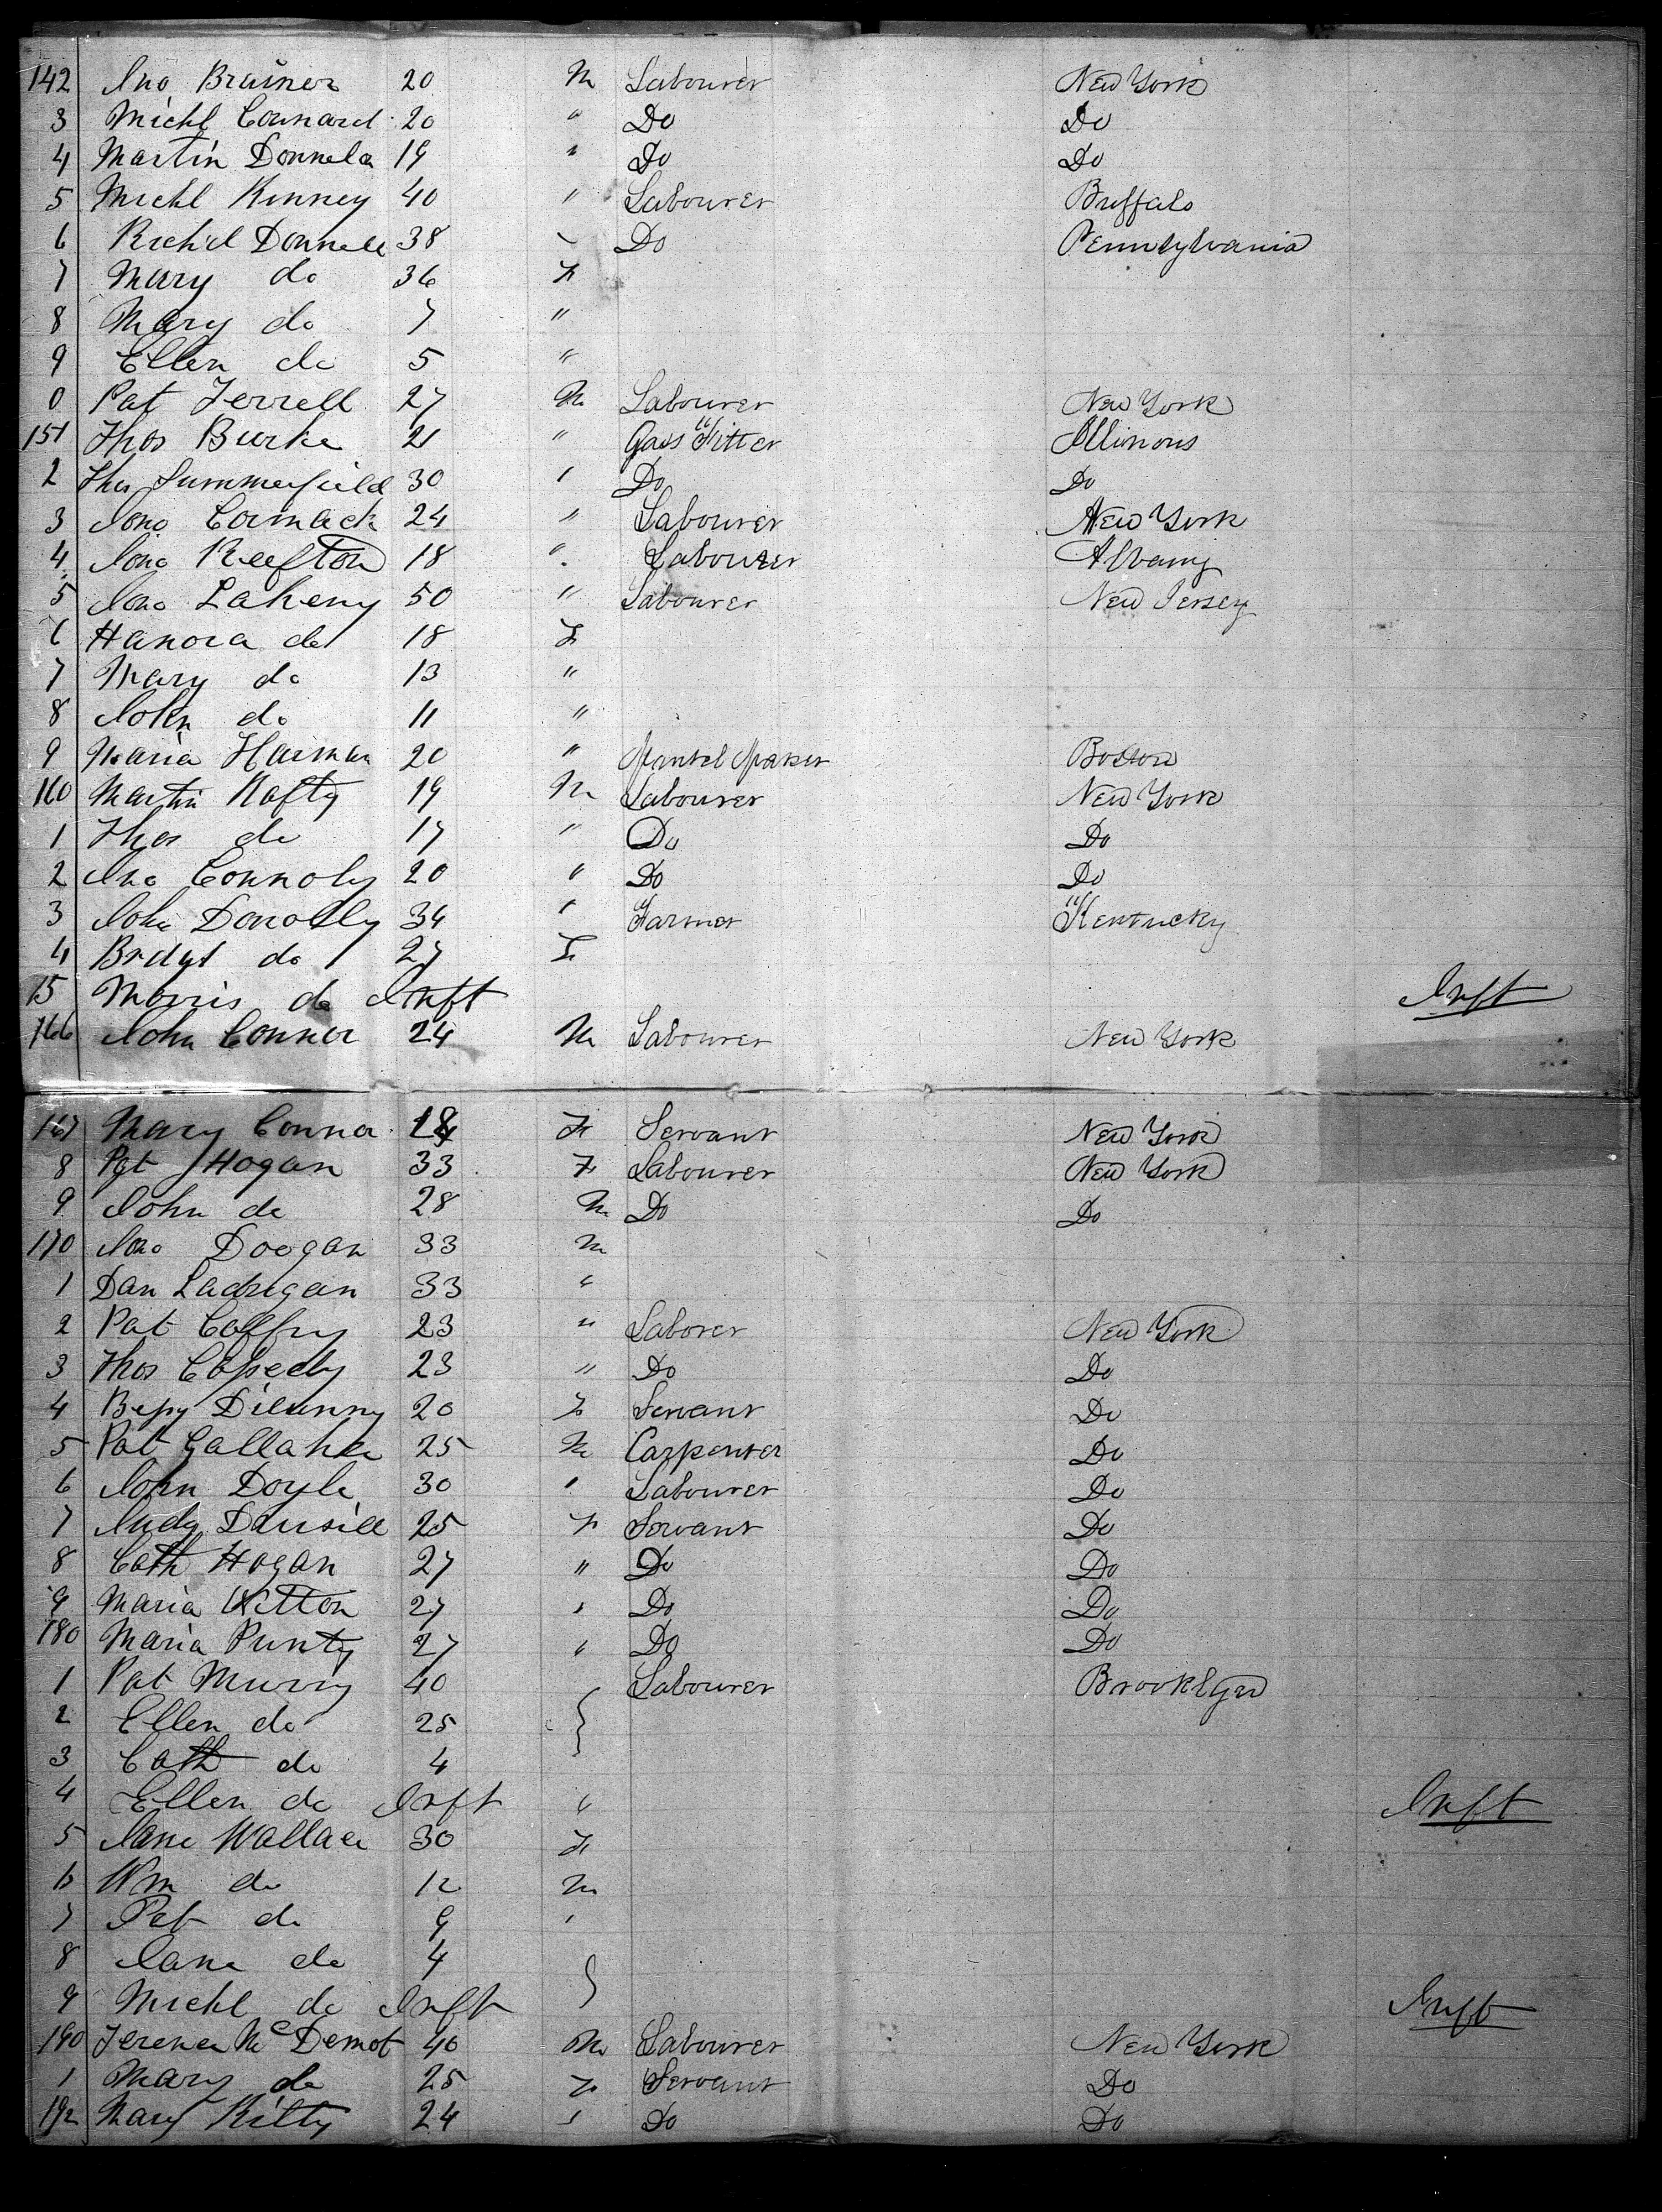 142 Jno Brainer 20 M Labourer New York
3 Michl Connard 20 " Do Do
4 Martin Donnela 19 " Do Do
5 Michl Kinney 40 " Labourer Buffalo
6 Richd Donnell 38 " Do Pennsylvania
7 Mary do 36 F
8 Mary do 7 "
9 Ellen do 5 "
0 Pat Ferrell 27 M Labourer New York
151 Thos Burke 21 " Gass Fitter Illinous
2 Thos Summerfield 30 " Do Do
3 Jno Cormack 24 " Labourer New York
4 Jno Reefton 18 " Labourer Albany
5 Jno Laheny 50 " Labourer New Jersey
6 Hanora do 18 F
7 Mary do 13 "
8 John do 11 "
9 Maria Harman 20 " Mantel Maker Boston
160 Martin Nafty 19 M Labourer New York
1 Thos do 17 " Do Do
2 Jno Connoly 20 " Do Do
3 John Donolly 34 " Farmer Kentucky
4 Bridgt do 27 F
15 Morris do Inft Inft
166 John Conner 24 M Labourer New York
167 Mary Conner 18 F Servant New York
8 Pat Hogan 33 F Labourer New York
9 John do 28 M Do Do
170 Jno Doogan 33 M
1 Dan Ladrigan 33 "
2 Pat Caffry 23 " Laborer New York
3 Thos Cassedy 23 " Do Do
4 Bessy Dilunny 20 F Servant Do
5 Pat Gallaher 25 M Carpenter Do
6 John Doyle 30 " Labourer Do
7 Judy Dansill 25 F Servant Do
8 Cath Hogan 27 " Do Do
9 Maria Witton 27 " Do Do
180 Maria Punty 27 " Do Do
1 Pat Murry 40 Labourer Brooklyn
2 Ellen do 25
3 Cath do 4
4 Ellen do Inft " Inft
5 Jane Wallace 30 F
6 Wm do 12 M
7 Pat do 9 "
8 Jane do 4
9 Michl do Inft Inft
190 Terence McDermot 40 M Labourer New York
1 Mary do 25 F Servant Do
192 Mary Kitty 24 " Do Do